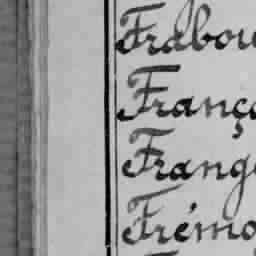 Frabou
França
Frang
Frémo